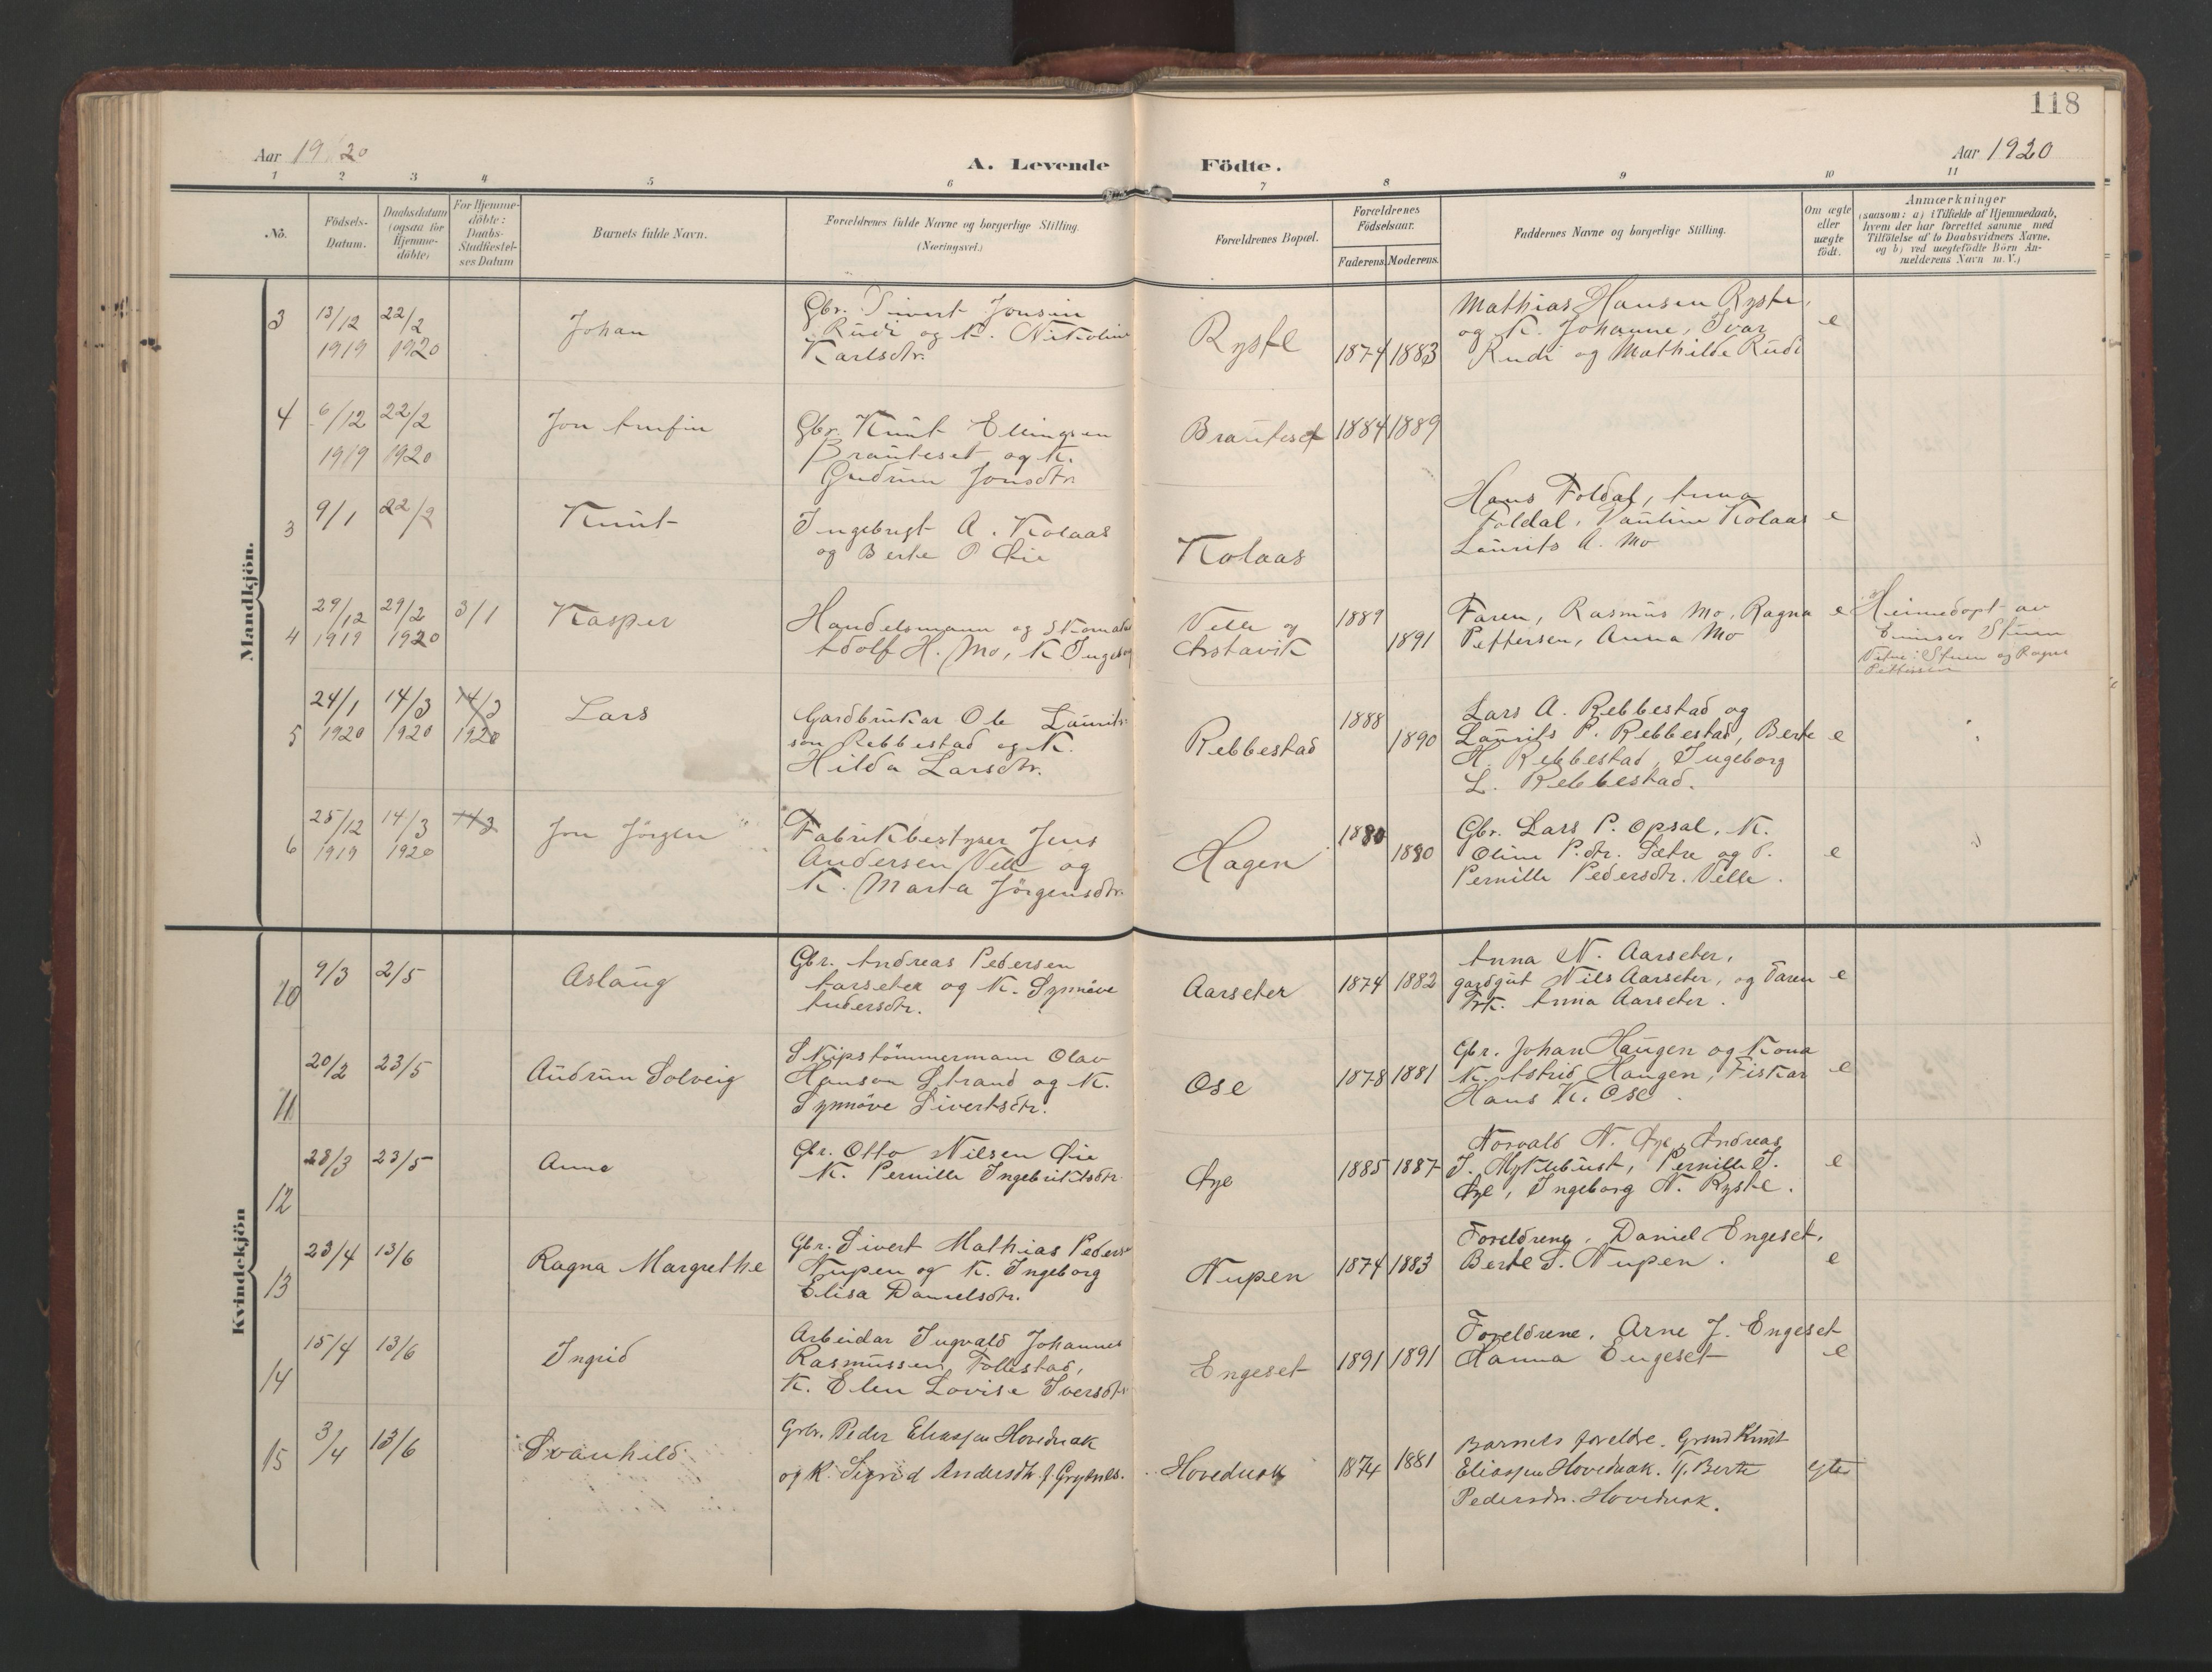 118
Aar 1920
A. Levende Födte.
Aar 1920
1 2 3 4 5 6 7 8 9 10 11
No.
Födsels-
Datum.
Daabsdatum
(ogsaa for
Hjemme-
döbte)
For Hjemme-
döbte:
Daabs-
Stadfæstel-
ses Datum
Barnets fulde Navn.
Forældrenes fulde Navne og borgerlige Stilling.
(Næringsvei.)
Forældrenes Bopæl.
Forældrenes
Födselsaar.
Faderens. Moderens.
Faddernes Navne og borgerlige Stilling.
Om ægte
eller
uægte
födt.
Anmærkninger
(saasom: a) i Tilfælde af Hjemmedaab,
hvem der har forrettet samme med
Tilföielse af to Daabsvidners Navne,
og b) ved uægtefödte Börn An-
melderens Navn m. V.)
Mandkjön.
3 13/12 1919 22/2 1920 Johan
Gbr. Sivert Jonsen
Rudi og K. Nikoline
Karlsdtr.
Ryste 1874 1883
Mathias Hansen Ryste,
og K. Johanne, Ivar
Rudi og Mathilde Rudi
e
4 6/12 1919 22/2 1920 Jon Arnfin
Gbr. Knut Ellingsen
Brauteset og K.
Gudrun Jonsdtr.
Brauteset 1884 1889
3 9/1 22/2 Knut
Ingebrigt A. Kolaas
og Berte P Øie
Kolaas
Hans Foldal, Anna
Foldal, Pauline Kolaas
Laurits A. Mo
e
4 29/12 1919 29/2 1920 3/1 Kasper
Handelsmann og
Adolf H. Mo, K Ingeborg
Velle og
Årstavik
1889 1891
Faren, Rasmus Mo, Ragna
Pettersen, Anna Mo
e
Heimedøpt av
Stuen
Vitne: Stuen og Ragna
Pettersen
5 24/1 1920 14/3 1920 14/3 1920 Lars
Gardbrukar Ole Laurits-
son Rebbestad og K.
Hilda Larsdtr.
Rebbestad 1888 1890
Lars A. Rebbestad og
Laurits P. Rebbestad, Berte
H. Rebbestad, Ingeborg
L. Rebbestad.
e
6 25/12 1919 14/3 1920 14/3 Jon Jörgen
Fabrikbestyrer Jens
Andersen Velle og
K. Marta Jörgensdtr.
Hagen 1880 1880
Gbr. Lars P. Opsal, K.
Oline P.dtr. Sætre og P.
Pernille Pedersdtr. Velle.
e
Kvindekjön
10 9/3 2/5 Aslaug
Gbr. Andreas Pedersen
Aarseter og K. Synnöve
Andersdtr.
Aarseter 1874 1882
Anna N. Aarseter,
gardgut Nils Aarseter, og Faren
Frk. Anna Aarseter.
e
11 20/2 23/5 Audrun Solveig
Skipstömmermann Olav
Hanson Strand og K.
Synnöve Sivertsdtr.
Ose 1878 1881
Gbr. Johan Haugen og Kona
K. Astrid Haugen, Fiskar
Hans K. Ose.
e
12 28/3 23/5 Anna
Gbr. Otto Nilsen Øie
K. Pernille Ingebriktsdtr.
Øye 1885 1887
Norvald N. Øye, Andreas
J. Myklebust, Pernille J.
Øye, Ingeborg N. Ryste.
e
13 23/4 13/6 Ragna Margrethe
Gbr. Sivert Mathias Peders
Nupen og K. Ingeborg
Elisa Danielsdtr.
Nupen 1874 1883
Foreldreng, Daniel Engeset,
Berte S. Nupen.
e
14 15/4 13/6 Ingrid
Arbeidar Ingvald Johannes
Rasmussen Follestad,
K. Elen Lovise Iversdtr
Engeset 1891 1891
Foreldrene, Arne J. Engeset
Hanna Engeset
e
15 3/4 13/6 Svanhild
Grbr. Peder Eliassen Hovednak
og K. Sigrid Andersdtr f. Grytnes.
Hovednak 1874 1881
Barnets foreldre. Knut
Eliassen Hovednak. Berte
Pedersdtr. Hovednak.
egte